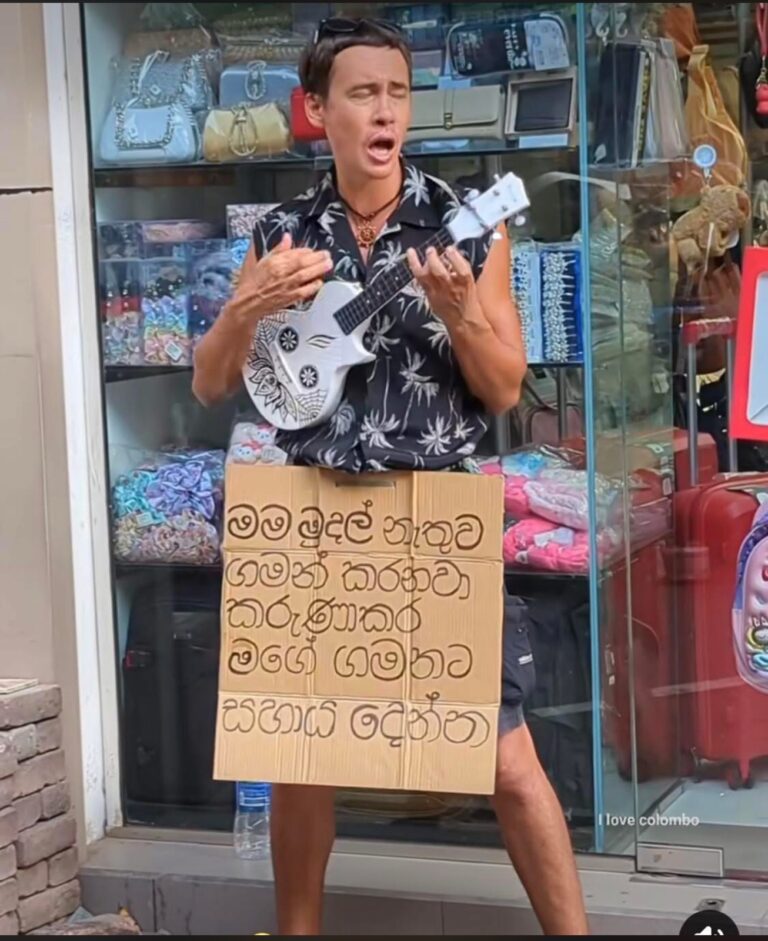 මම මුදල් නැතුව
ගමන් කරනවා
කරුණාකර
මගේ ගමනට
සහාය දෙන්න
I love colombo